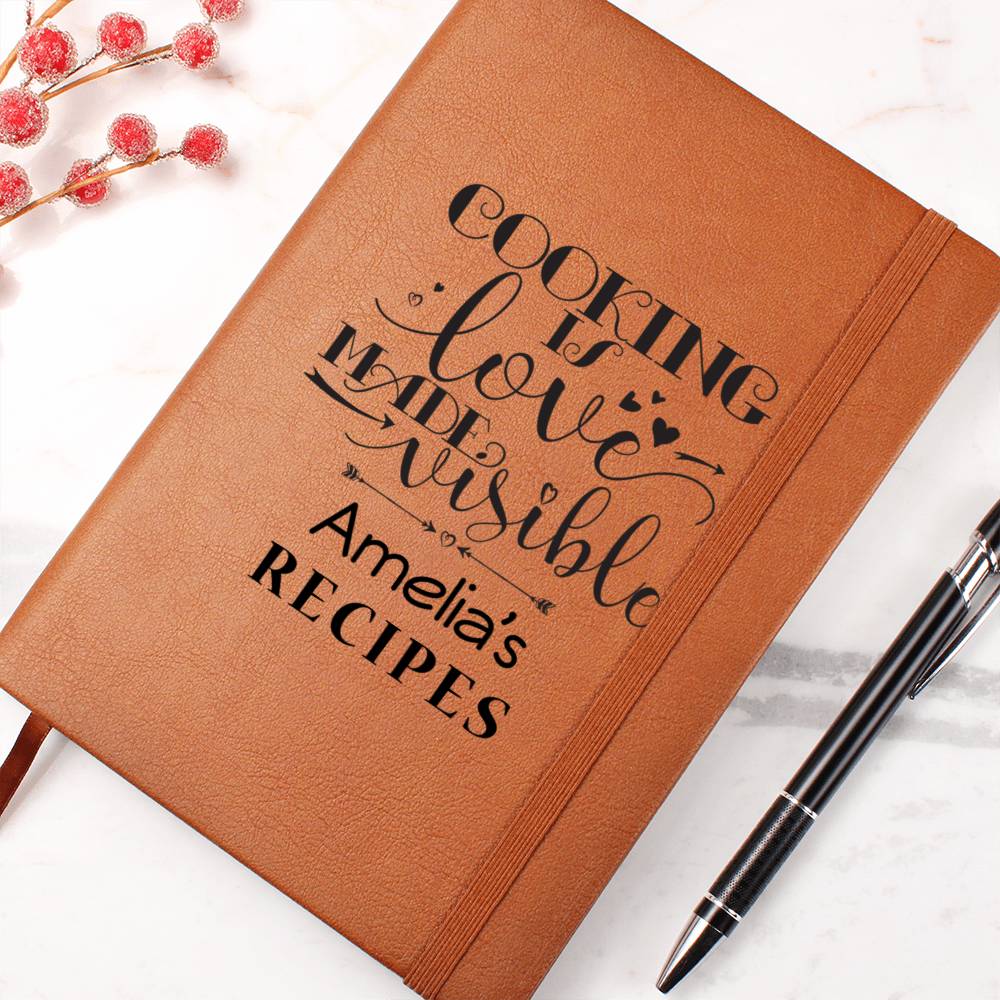 COOKING
IS
love
MADE
visible
Amelia's
RECIPES